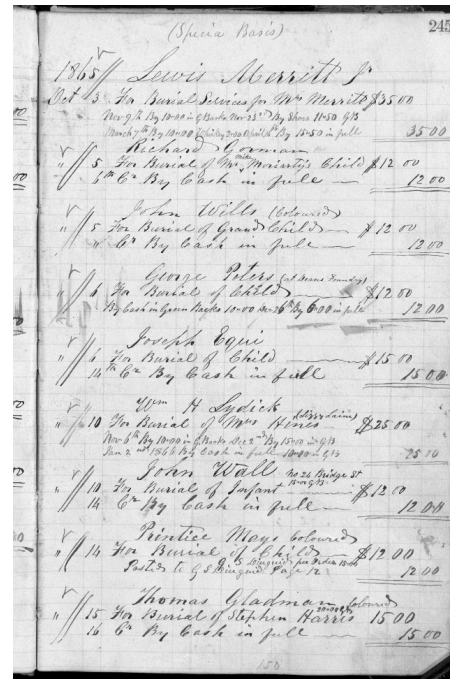 (Specia Basis)
245
1865 Lewis Merritt Jr
Oct 3 For Burial Services for Mrs Merritt $35 00
Nov 9th By 10=00 in G Backs Nov 23rd By Shoes 11=50 GB
March 7th By 10=00 3=00 April By 15=50 in full 35 00
Richard Gorman
" 5 For Burial of Mrs Moiarty's Child $12 00
6th Cr By Cash in full — 12 00
John Wills (Coloured)
" 5 For Burial of Grand Child — $12 00
" Cr By Cash in full — 12 00
George Peters (at Deans Foundry)
" 6 For Burial of Child — $12 00
By Cash in Green Backs 10=00 Dec 26th By 6=00 in full 12 00
Joseph Equi
" 6 For Burial of Child — $15 00
14th Cr By Cash in full 15 00
Wm H Lydick
" 10 For Burial of Mrs Hines $25 00
Nov 6th By 10=00 in G Backs Dec 2nd By 15=00 in GB
Jan 2nd 1866 By Cash in full 10=00 in GB 25 00
John Wall No 24 Bridge St
" 10 For Burial of Infant — $12 00
14 Cr By Cash in full — 12 00
Printice Mays Coloured
" 14 For Burial of Child — $12 00
Posted to G S Diuguid Page 12 12 00
Thomas Gladman Coloured
" 15 For Burial of Stephen Harris 15 00
16 Cr By Cash in full — 15 00
150